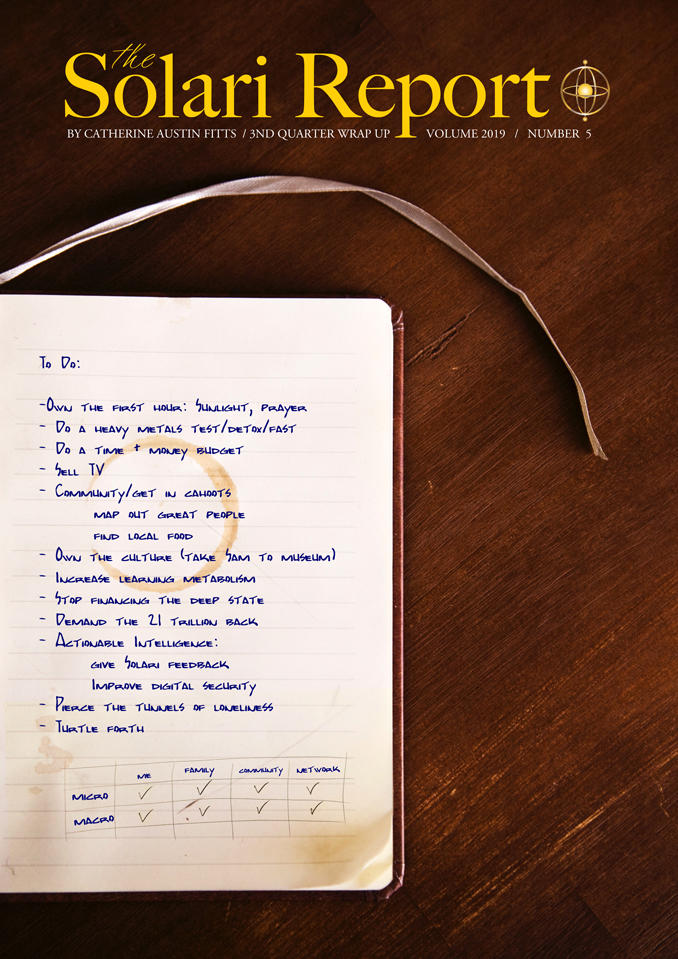 the
Solari Report
BY CATHERINE AUSTIN FITTS / 3ND QUARTER WRAP UP VOLUME 2019 / NUMBER 5
To Do:
-Own the first hour: Sunlight, prayer
- Do a heavy metals test/detox/fast
- Do a time + money budget
- Sell TV
- Community/get in cahoots
map out great people
find local food
- Own the culture (take Sam to museum)
- Increase learning metabolism
- Stop financing the deep state
- Demand the 21 trillion back
- Actionable Intelligence:
give Solari feedback
Improve digital security
- Pierce the tunnels of loneliness
- Turtle forth
me family community network
micro ✓ ✓ ✓ ✓
macro ✓ ✓ ✓ ✓